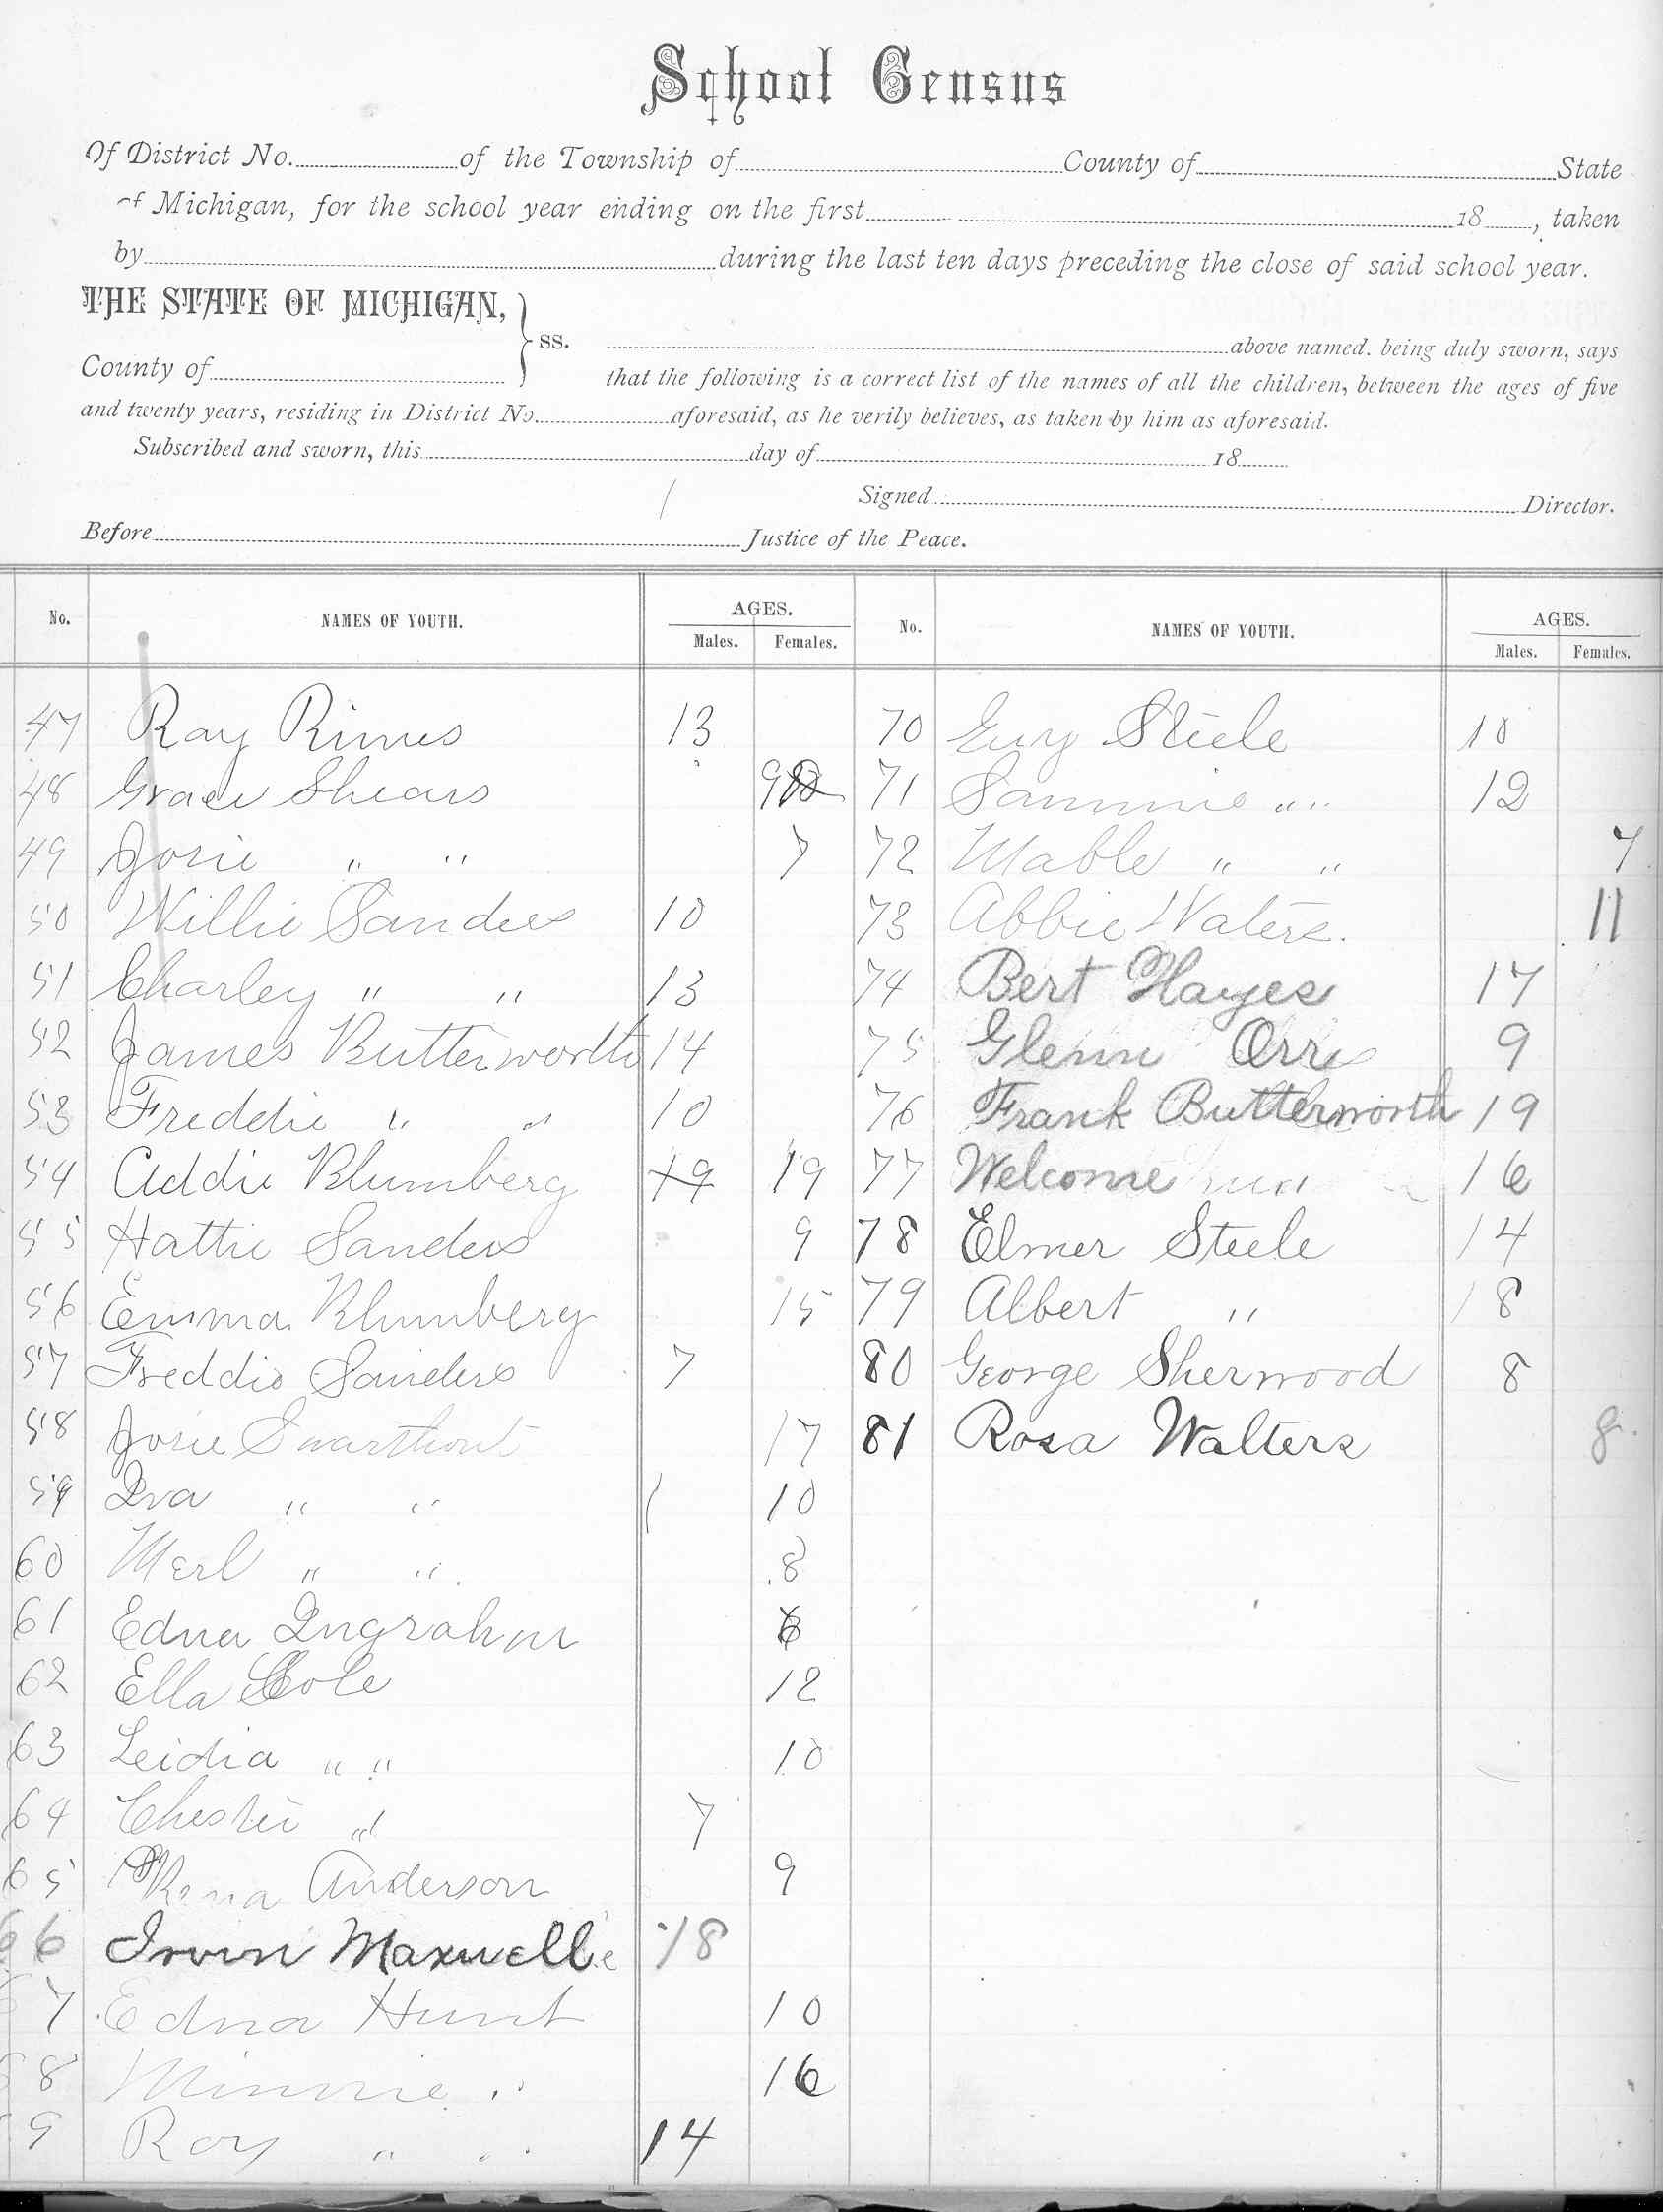 School Census
Of District No. of the Township of County of State
of Michigan, for the school year ending on the first 18 , taken
by during the last ten days preceding the close of said school year.
THE STATE OF MICHIGAN,
County of
} ss.
above named. being duly sworn, says
that the following is a correct list of the names of all the children, between the ages of five
and twenty years, residing in District No. aforesaid, as he verily believes, as taken by him as aforesaid.
Subscribed and sworn, this day of 18
Signed Director.
Before Justice of the Peace.
No. NAMES OF YOUTH. AGES. Males. Females. No. NAMES OF YOUTH. AGES. Males. Females.
47 Ray Rimes 13
48 Grace Shears 9
49 Josie " " 7
50 Willie Sanders 10
51 Charley " " 13
52 James Butterworth 14
53 Freddie " " 10
54 Addie Blumberg 19 19
55 Hattie Sanders 9
56 Emma Blumberg 15
57 Freddie Sanders 7
58 Josie Swarthout 17
59 Iva " " 10
60 Merl " " 8
61 Edna Ingrahm 6
62 Ella Cole 12
63 Leidia " " 10
64 Chester " 7
65 Anderson 9
66 Irvin Maxwell 18
67 Edna Hunt 10
68 Minnie " 16
69 Roy " " 14
70 Guy Steele 10
71 Sammie " " 12
72 Mable " " 7
73 Abbie Waters. 11
74 Bert Hayes 17
75 Glenn Orr 9
76 Frank Butterworth 19
77 Welcome 16
78 Elmer Steele 14
79 Albert " 18
80 George Sherwood 8
81 Rosa Walters 8